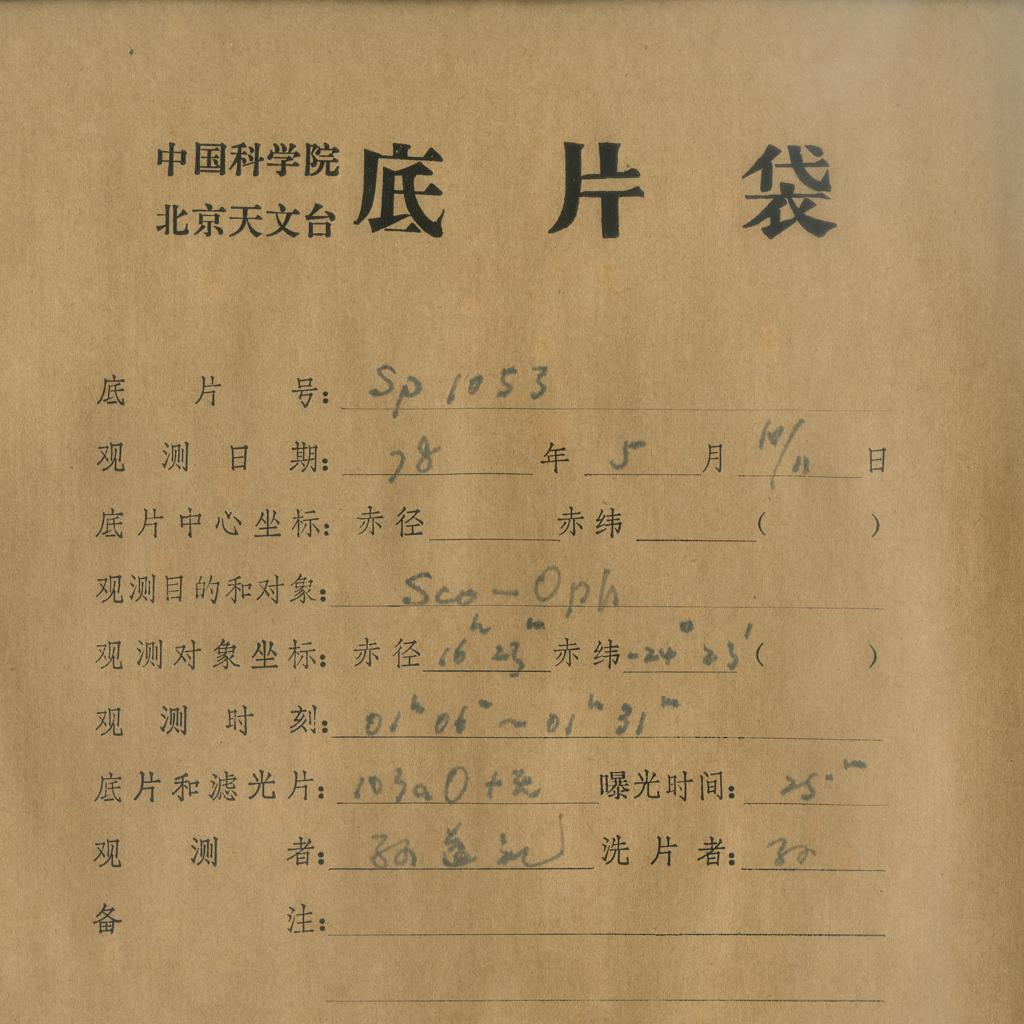 中国科学院
北京天文台 底片袋
底片号: Sp 1053
观测日期: 78 年 5 月 10/11 日
底片中心坐标: 赤径 赤纬 ( )
观测目的和对象: Sco-Oph
观测对象坐标: 赤径 16h 23m 赤纬 -24° 23' ( )
观测时刻: 01h 06m ~ 01h 31m
底片和滤光片: 103aO + 无 曝光时间: 25m
观测者: 孙益礼 洗片者: 孙
备注: